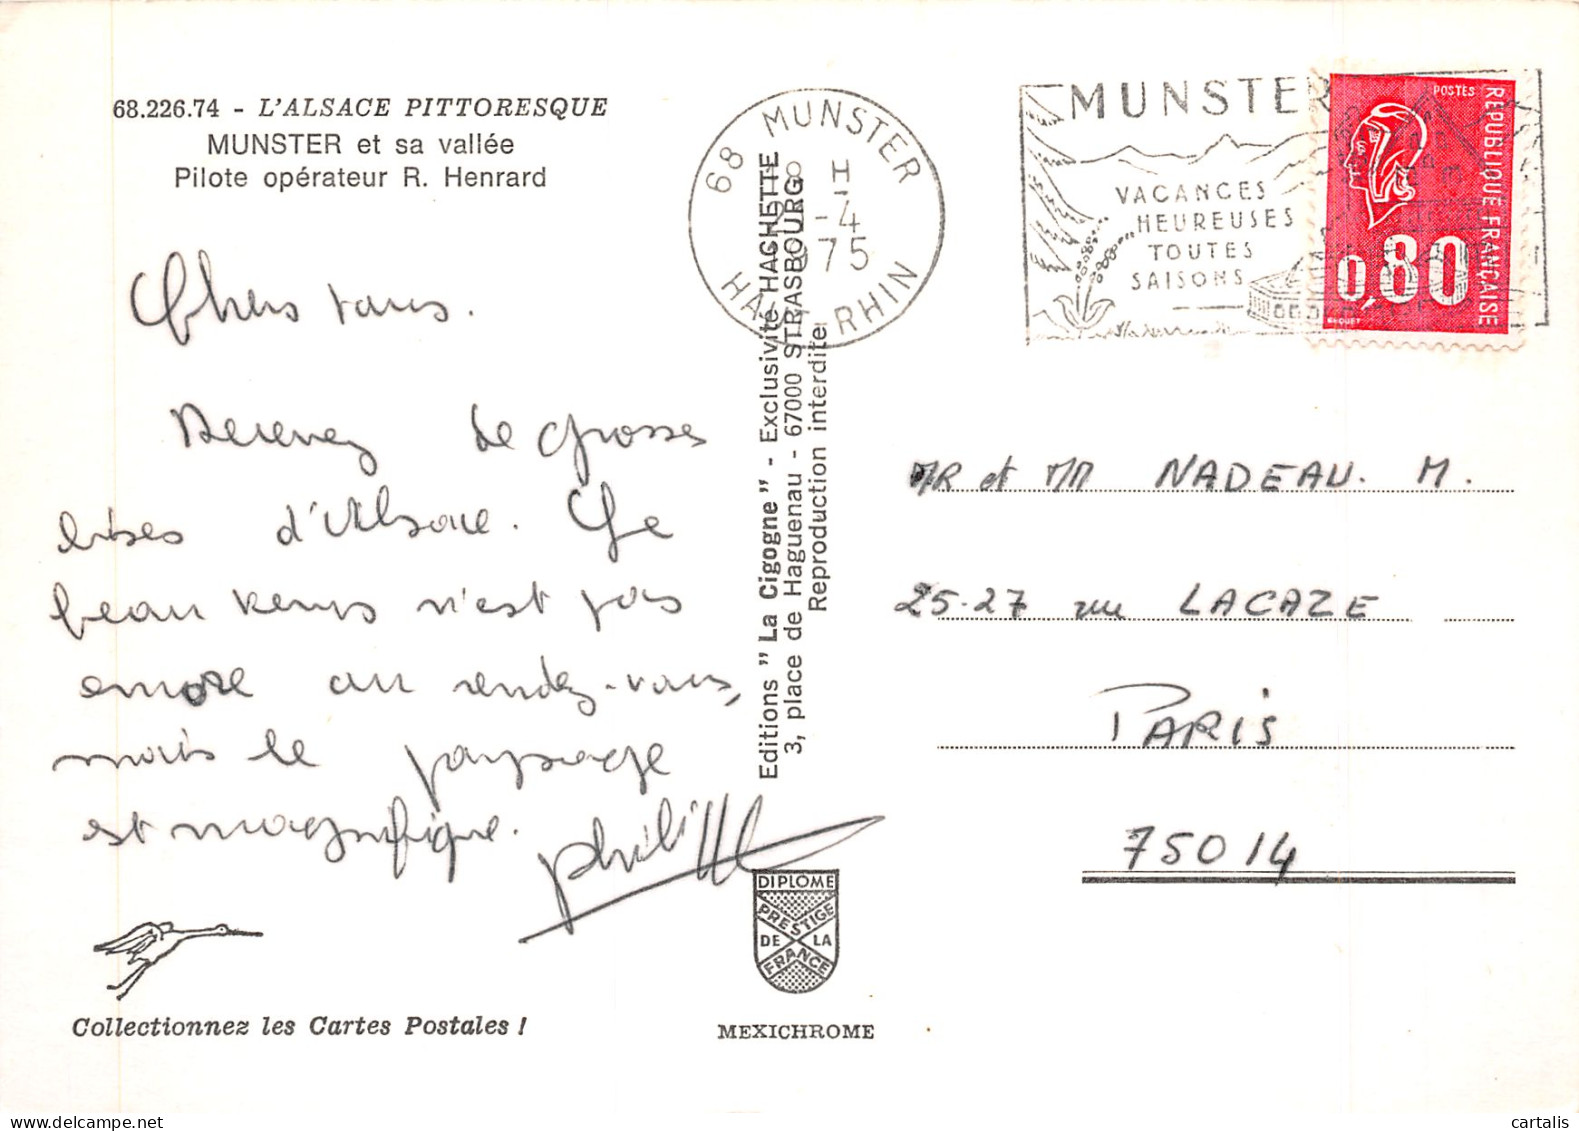 68.226.74 - L'ALSACE PITTORESQUE
MUNSTER et sa vallée
Pilote opérateur R. Henrard
Chers tous.
Recevez de grosses
bises d'Alsace. Le
beau temps n'est pas
encore au rendez-vous,
mais le paysage
est magnifique.
Philippe
Collectionnez les Cartes Postales !
Editions " La Cigogne " - Exclusivité HACHETTE
3, place de Haguenau - 67000 STRASBOURG
Reproduction interdite
DIPLOME
PRESTIGE
DE LA
FRANCE
MEXICHROME
68 MUNSTER
H
-4
1975
HAUT-RHIN
MUNSTER
VACANCES
HEUREUSES
TOUTES
SAISONS
POSTES
REPUBLIQUE FRANÇAISE
0,80
BEQUET
MR et MM NADEAU. M.
25-27 rue LACAZE
PARIS
75014
© delcampe.net
cartalis